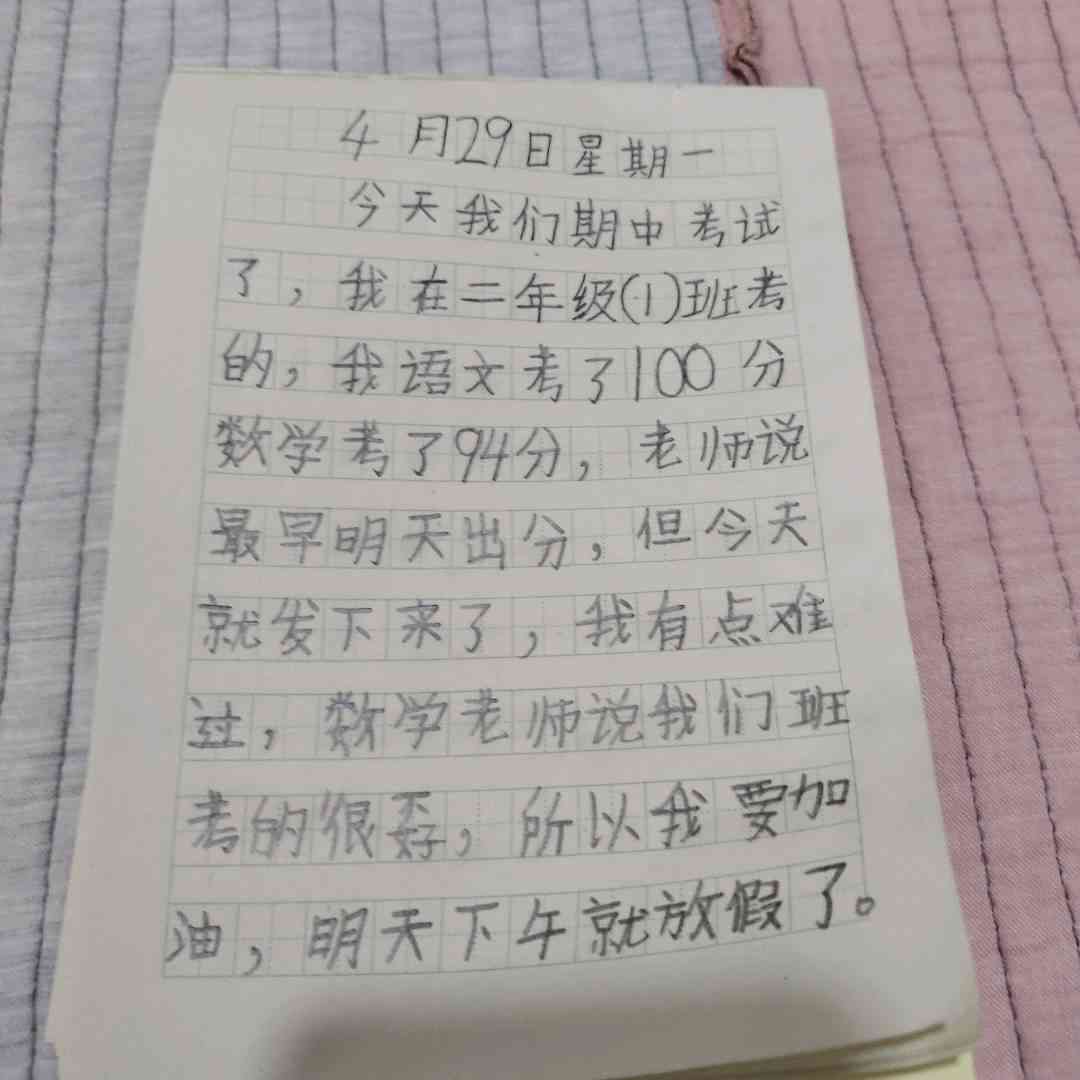 4月29日星期一
今天我们期中考试
了，我在二年级(1)班考
的，我语文考了100分
数学考了94分，老师说
最早明天出分，但今天
就发下来了，我有点难
过，数学老师说我们班
考的很孬，所以我要加
油，明天下午就放假了。